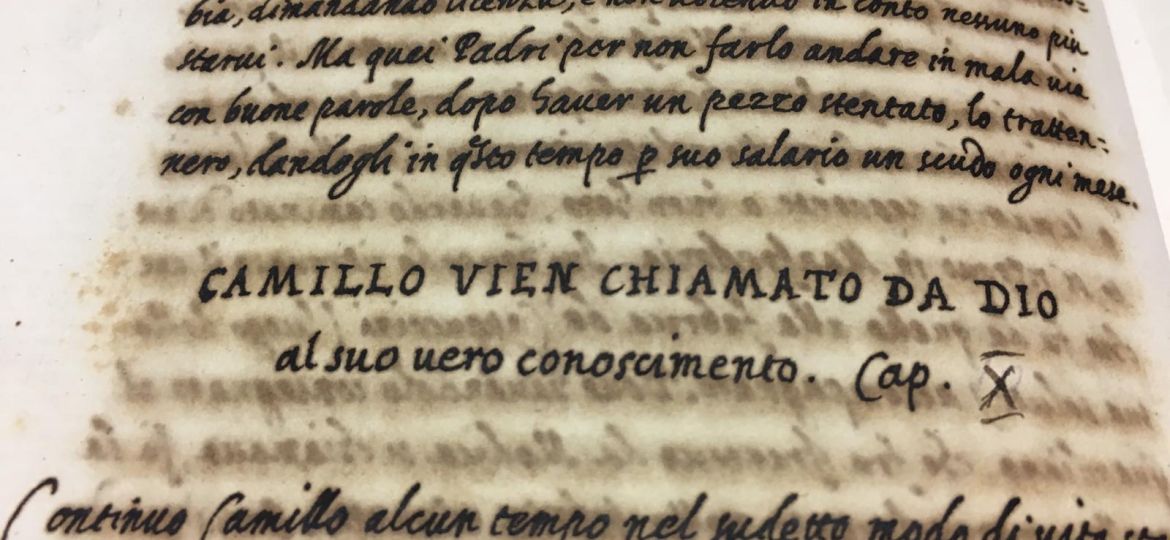 bia, dimandando licenza, e non uolendo in conto nessuno piu
starui. Ma quei Padri per non farlo andare in mala uia
con buone parole, dopo hauer un pezzo stentato, lo tratten=
nero, dandogli in q̃sto tempo ꝑ suo salario un scudo ogni mese.
CAMILLO VIEN CHIAMATO DA DIO
al suo uero conoscimento. Cap. X
Continuo Camillo alcun tempo nel sudetto modo di uita